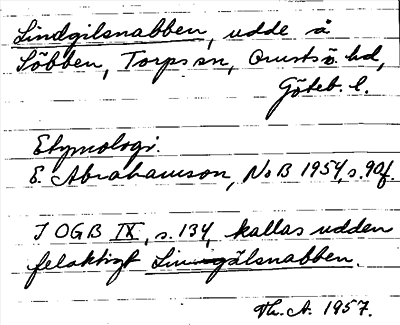 Lindgilsnabben, udde å
Söbben, Torps sn, Orusts ö. hd,
Göteb. l.
Etymologi.
E. Abrahamson, NoB 1954, s. 90f.
I OGB IX, s. 134, kallas udden
felaktigt Lin-gälsnabben.
Th. A. 1957.